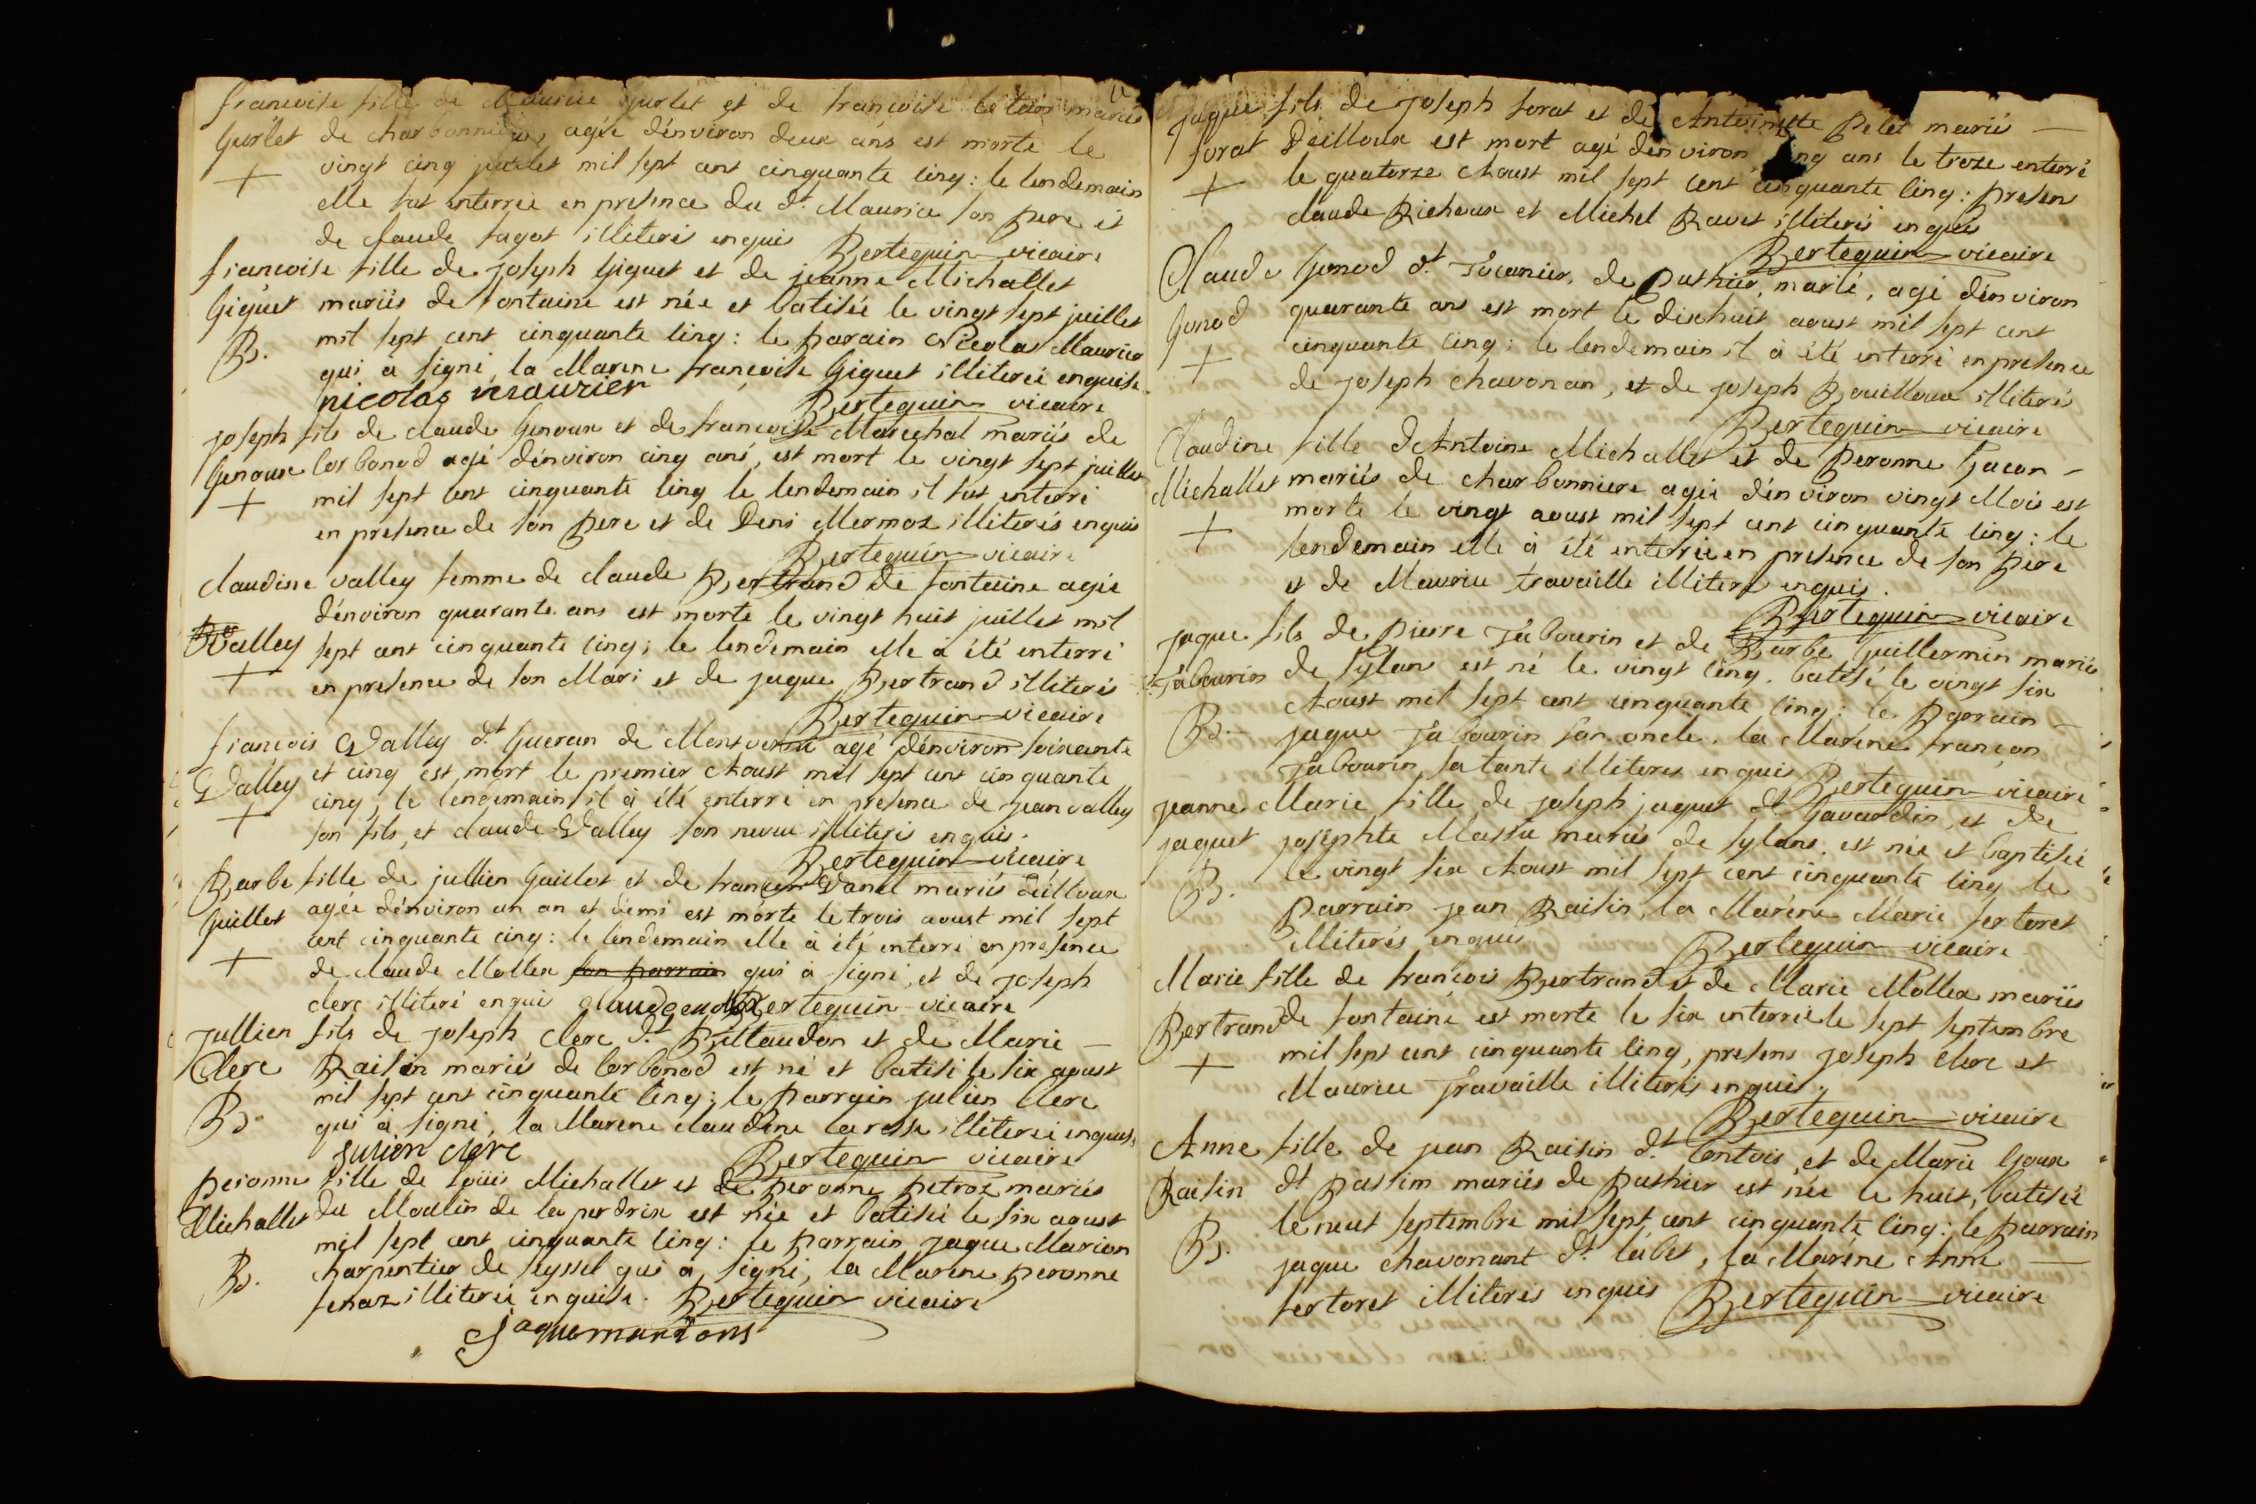 francoise fille de Maurice Gurlet et de francoise mariés
Gurlet de charbonniere, agée dénviron deux ans est morte le
+ vingt cinq juillet mil sept cent cinquante cinq: le lendemain
elle fut enterrée en presence du dt. Maurice son pere et
de claude fagot illiterés enquis Bertequin vicaire
francoise fille de joseph Giguet et de jeanne Michallet
Giguet mariés de fontaine est née et batisée le vingt sept juillet
B. mil sept cent cinquante cinq: le parain Nicolas Maurier
qui à signé, la Marene francoise Giguet illiterée enquise.
nicolas meaurier Bertequin vicaire
joseph fils de claude Genoux et de francoise Marechal mariés de
Genoux Corbonod agé dénviron cinq ans, est mort le vingt sept juillet
+ mil sept cent cinquante cinq le lendemain il fut enterré
en presence de son pere et de Deni Mermoz illiterés enquis
Bertequin vicaire
claudine valley femme de claude Bertrand de fontaine agée
dénviron quarante ans est morte le vingt huit juillet mil
Valley sept cent cinquante cinq; le lendemain elle à été enterré
+ en presence de son Mari et de jaque Bertrand illiterés
Bertequin vicaire
francois Valley dt Gueran de Montverni agé dénviron soixante
Valley et cinq est mort le premier Aoust mil sept cent cinquante
+ cinq, le lendemain il à été enterré en presence de jean valley
son fils, et claude Valley son neveu illiterés enquis.
Bertequin vicaire
Barbe fille de jullien Guillot et de Vanel mariés déilloux
Guillot agée dénviron un an et demi est morte le trois aoust mil sept
+ cent cinquante cinq: le lendemain elle à été enterré en presence
de claude Mollex son parrain qui à signé, et de joseph
clerc illiteré enqui Bertequin vicaire
jullien fils de joseph clerc dt. Billaudon et de Marie —
Clerc Raisin mariés de Corbonod est né et batisé le six aoust
B. mil sept cent cinquante cinq; le parrain julien Clerc
qui à signé, la Marene claudine larosse illiterée enquise
julien clerc Bertequin vicaire
peronne fille de loüis Michallet et de peronne petroz mariés
Michallet du Moulin de la perdrix est née et batisée le six aoust
mil sept cent cinquante cinq: le parrain jaque Marion
B. charpentier de seyssel qui à signé, la Marene peronne
fenaz illiterée enquise. Bertequin vicaire
jaque marions
jaque fils de joseph forat et de Antoinette Pelet mariés —
forat Déilloux est mort agé dénviron cinq ans le treze enterré
+ le quatorze Aoust mil sept cent cinquante cinq: presen
claude Richoux et Michel Ravet illiterés enquis
Bertequin vicaire
Claude Gonod dt. de Puthier, marié, agé dénviron
Gonod quarante ans est mort le dixhuit aoust mil sept cent
+ cinquante cinq; le lendemain il à été enterré en presence
de joseph chavonan, et de joseph Bouilloux illiterés
Bertequin vicaire
Claudine fille dAntoine Michallet et de peronne Gacon —
Michallet mariés de charbonniere agée dénviron vingt Mois est
+ morte le vingt aoust mil sept cent cinquante cinq: le
lendemain elle à été enterrée en presence de son pere
et de Maurice travaille illiterés enquis.
Bertequin vicaire
jaque fils de pierre Jabourin et de Barbe Guillermin mariés
Jabourin de sylan est né le vingt cinq. batisé le vingt six
B. Aoust mil sept cent cinquante cinq: le parrain —
jaque Jabourin son oncle. la Maréne françon
Jabourin sa tante illiterés enquis Bertequin vicaire
jeanne Marie fille de joseph jaquet dt Gavardin, et de
jaquet joséphte Massu mariés de sylans. est née et baptisée
B. le vingt six Aoust mil sept cent cinquante cinq le
parrain jean Raisin, la Maréne Marie fertoret
illiterés enquis Bertequin vicaire
Marie fille de françois Bertrand et de Marie Mollex mariés
Bertrand de fontaine est morte le six enterrée le sept septembre
+ mil sept cent cinquante cinq, presens joseph clerc et
Maurice travaille illiterés enquis.
Bertequin vicaire
Anne fille de jean Raisin dt. Contois, et de Marie Goux
Raisin dt passim mariés de puthier est née le huit, batisée
B. le neuf septembre mil sept cent cinquante cinq: le parrain
jaque chavonant dt. labet, la Maréne Anne —
fertoret illiterés enquis Bertequin vicaire